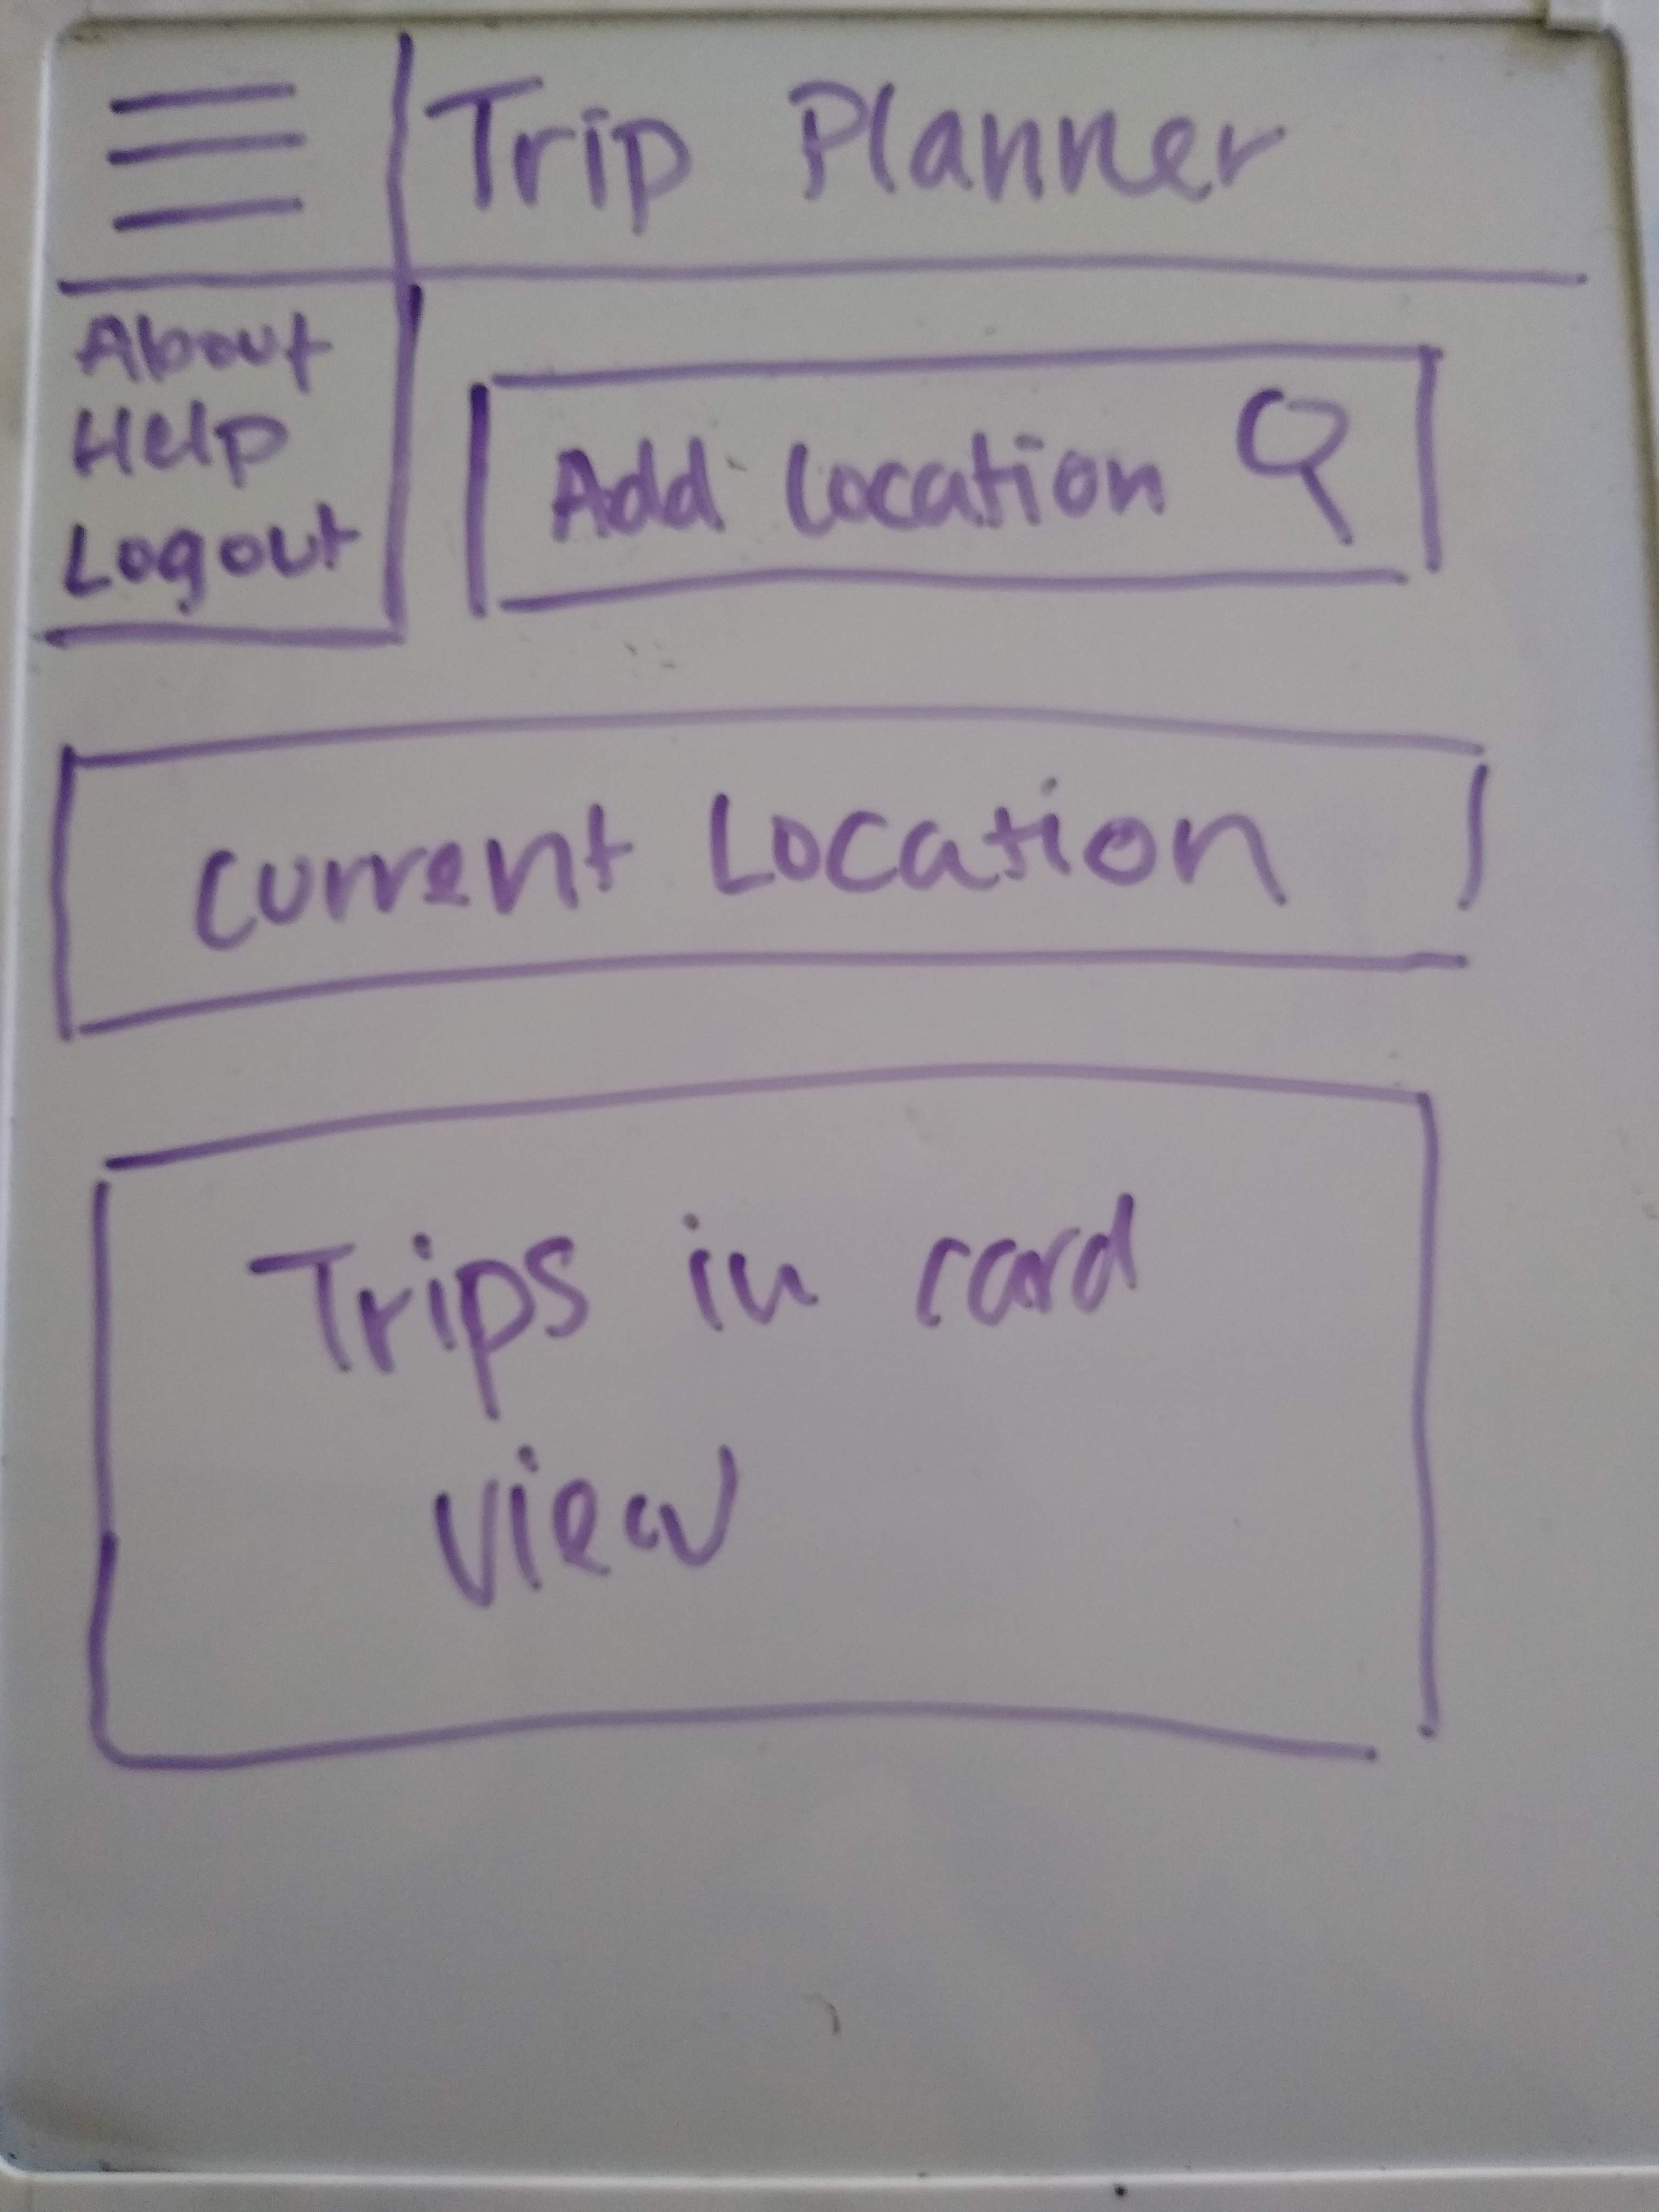 Trip Planner
About
Help
Logout
Add location
Current Location
Trips in card
view